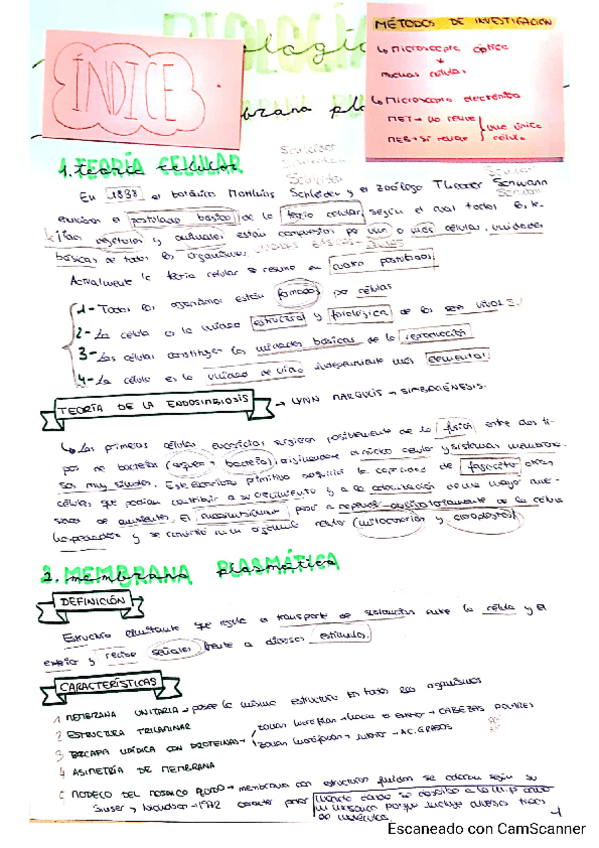 BIOLOGÍA
MÉTODOS DE INVESTIGACIÓN
↳ Microscopio óptico
muchas células
↳ Microscopio electrónico
MET → no vive
MEB → sí
una única
célula
ÍNDICE
membrana
1. TEORÍA CELULAR
Schleider
Schleider
En 1838 el botánico Matthias Schleider y el zoólogo Theodor Schwann
el postulado básico de la teoría celular, según el cual todos
vegetales y animales están compuestos por una o más células, unidades
básicas de todos los organismos.
Actualmente la teoría celular se resume en cuatro postulados:
1- Todos los organismos están formados por células
2- La célula es la unidad estructural y fisiológica de los seres vivos.
3- Las células constituyen las unidades básicas de la reproducción
4- La célula es la unidad de vida independiente más elemental.
TEORÍA DE LA ENDOSIMBIOSIS → LYNN MARGULIS → SIMBIOGÉNESIS.
↳ Las primeras células eucariotas surgieron posiblemente de la fusión entre dos ti-
pos de bacterias (arquea + bacteria), originándose el núcleo celular y sistemas membrano-
sos muy simples. Este eucariota primitivo adquirió la capacidad de fagocitar otras
células que podían contribuir a su crecimiento y a la colonización de una mayor
de ambientes. El pasó a depender de la célula
hospedadora y se convirtió en un orgánulo celular (mitocondrias y cloroplastos).
2. MEMBRANA PLASMÁTICA
DEFINICIÓN
Estructura limitante que regula el transporte de sustancias entre la célula y el
exterior y recibe señales frente a diversos estímulos.
CARACTERÍSTICAS
1 MEMBRANA UNITARIA → posee la misma estructura en todos los organismos
2 ESTRUCTURA TRILAMINAR
3 BICAPA LIPÍDICA CON PROTEÍNAS → zonas hidrófilas → hacia el exterior → CABEZAS POLARES
zonas hidrófobas → AC. GRASOS
4 ASIMETRÍA DE MEMBRANA
5 MODELO DEL MOSAICO FLUIDO → membrana con estructura fluida
Singer y Nicholson → 1972
un mosaico porque incluye diversos tipos
de moléculas
1
Escaneado con CamScanner